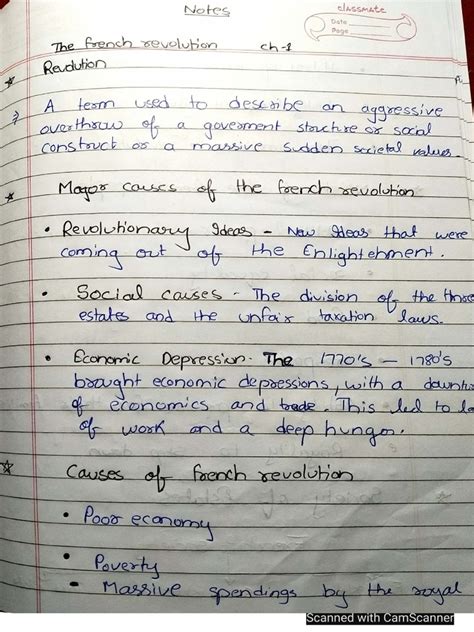 Notes
classmate
Date
Page
The french revolution ch-1
Revdution
A term used to describe an aggressive
overthrow of a goverment structure or social
construct or a massive sudden societal values.
Major causes of the french revolution
• Revolutionary Ideas - New Ideas that were
coming out of the Enlightehment.
• Social causes - The division of the three
estates and the unfair taxation laws.
• Economic Depression - The 1770's - 1780's
brought economic depressions, with a
of economics and trade. This led to
of work and a deep hunger.
Causes of french revolution
• Poor economy
• Poverty
• Massive spendings by the royal
Scanned with CamScanner